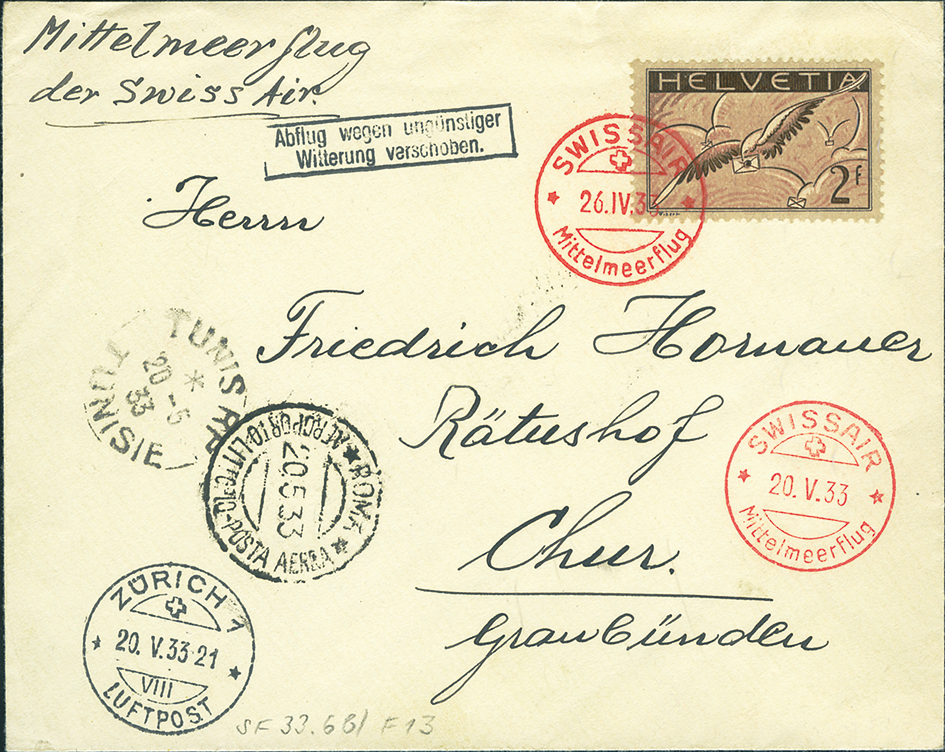 Mittelmeerflug
der Swiss Air.
Abflug wegen ungünstiger
Witterung verschoben.
HELVETIA
2F
SWISSAIR
26.IV.33
Mittelmeerflug
Herrn
Friedrich Hornauer
Rätushof
Chur.
Graubünden
TUNIS RP
20 - 5
33
TUNISIE
ROMA
20.5.33
AEROPORTO-LITTORIO-POSTA AEREA
SWISSAIR
20. V. 33
Mittelmeerflug
ZÜRICH 1
20. V. 33-21
VIII
LUFTPOST
SF 33.6B/ F13